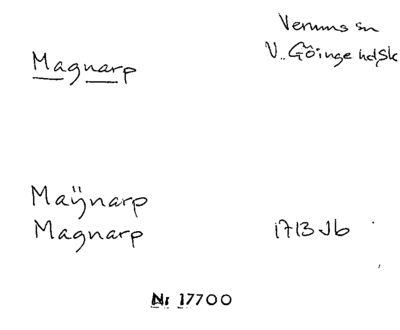 Magnarp
Verums sn
V. Göinge hd, Sk
Maÿnarp
Magnarp 1713 Jb
Nr 17700